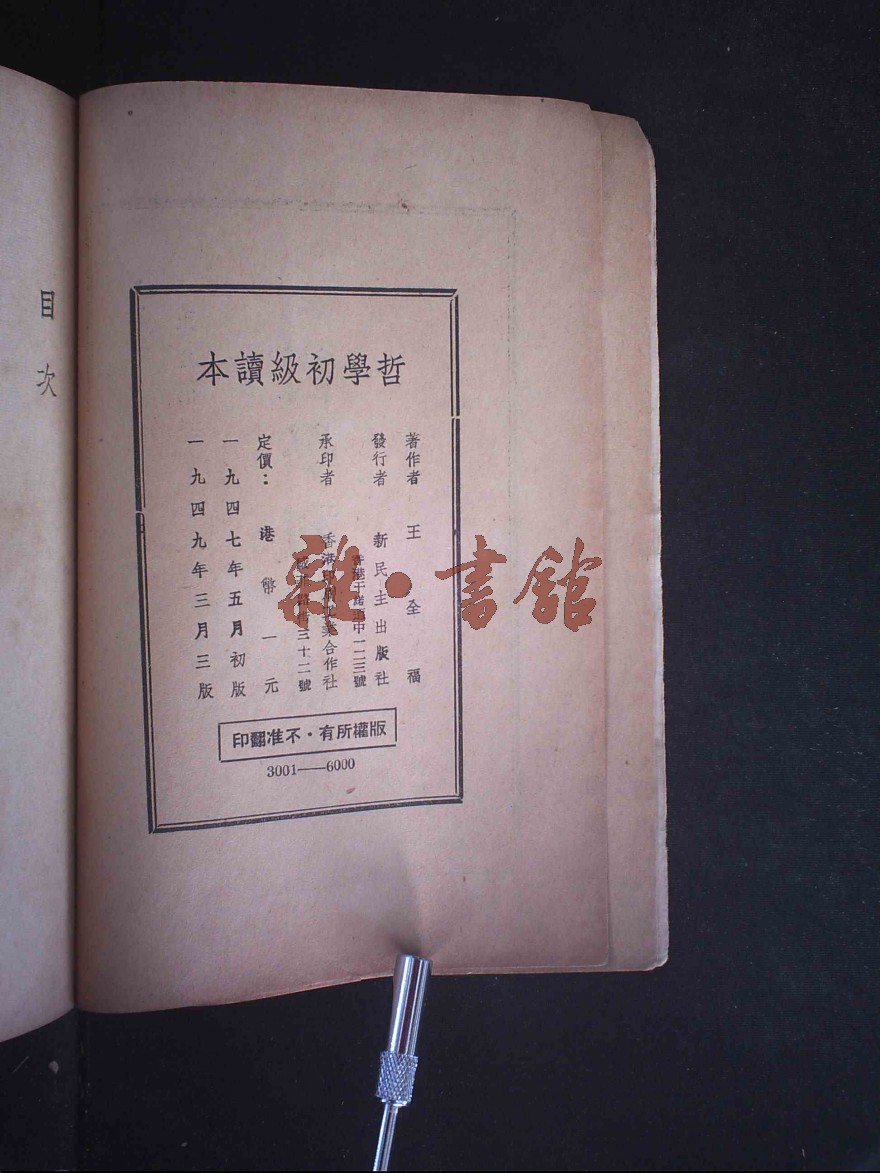 哲學初級讀本
著作者 王全福
發行者 新民主出版社
香港干諾道中一二三號
承印者 香港印刷工業合作社
三十二號
定價:港幣一元
一九四七年五月初版
一九四九年三月三版
版權所有·不准翻印
3001——6000
目次
雜·書館